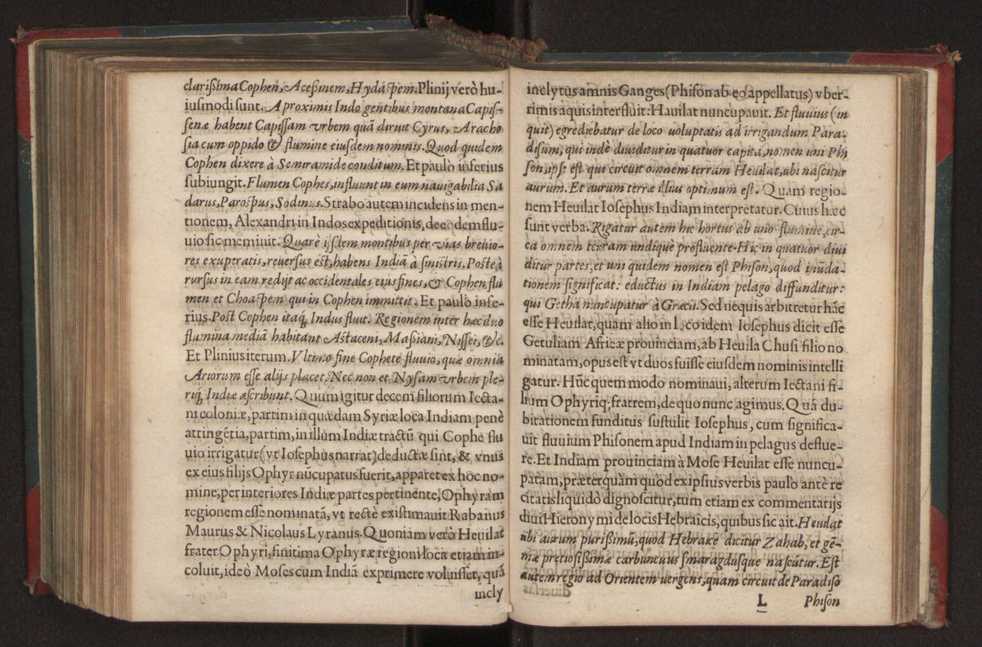 clarißima Cophen, Aceßinem, Hydaspem. Plinij verò hu-
iusmodi sunt. A proximis Indo gentibus montana Capis-
senæ habent Capissam vrbem quã diruit Cyrus, Aracho
sia cum oppido & flumine eiusdem nominis. Quod quidem
Cophen dixere à Semiramide conditum. Et paulò inferius
subiungit. Flumen Cophes, influunt in eum nauigabilia Sa
darus, Parospus, Sodinus. Strabo autem incidens in men-
tionem, Alexandri in Indos expeditionis, de eodem flu-
uio sic meminit. Quarè ijsdem montibus per vias breuio-
res exuperatis, reuersus est, habens Indiã à sinistris. Posteà
rursus in eam redijt ac occidentales eius fines, & Cophen flu
men et Choaspem qui in Cophen immittit. Et paulò infe-
rius. Post Cophen itaq; Indus fluit. Regionem inter hæc duo
flumina mediã habitant Astaceni, Maßiani, Nissei, &c.
Et Plinius iterum. Vltimo fine Cophete fluuio, quæ omnia
Ariorum esse alijs placet. Nec non et Nysam vrbem ple-
riq; Indiæ ascribunt. Quum igitur decem filiorum Iecta-
ni coloniæ, partim in quædam Syriæ loca Indiam penè
attingẽtia, partim, in illum Indiæ tractũ qui Cophe flu
uio irrigatur (vt Iosephus narrat) deductæ sint, & vnus
ex eius filijs Ophyr nũcupatus fuerit, apparet ex hoc no-
mine, per interiores Indiæ partes pertinente, Ophyram
regionem esse nominatã, vt rectè existimauit Rabanus
Maurus & Nicolaus Lyranus. Quoniam verò Heuilat
frater Ophyri, finitima Ophyræ regioni loca etiam in-
coluit, ideò Moses cum Indiã exprimere voluisset, quã
incly
inclytus amnis Ganges (Phison ab eo appellatus) vber-
rimis aquis interfluit: Hauilat nuncupauit. Et fluuius (in
quit) egrediebatur de loco voluptatis ad irrigandum Para-
disum, qui indè diuiditur in quatuor capita, nomen uni Phi
son, ipse est qui circuit omnem terram Heuilat, ubi nascitur
aurum. Et aurum terræ illius optimum est. Quam regio-
nem Heuilat Iosephus Indiam interpretatur. Cuius hæc
sunt verba. Rigatur autem hic hortus ab uno flumine, cir-
ca omnem terram undiquè profluente. Hic in quatuor diui
ditur partes, et uni quidem nomen est Phison, quod inũda-
tionem significat: eductus in Indiam pelago diffunditur:
qui Getha nũncupatur à Græcis. Sed nequis arbitretur hãc
esse Heuilat, quam alio in loco idem Iosephus dicit esse
Getuliam Africæ prouinciam, ab Heuila Chusi filio no
minatam, opus est vt duos fuisse eiusdem nominis intelli
gatur. Hũc quem modo nominaui, alterum Iectani fi-
lium Ophyriq; fratrem, de quo nunc agimus. Quã du-
bitationem funditus sustulit Iosephus, cum significa-
uit fluuium Phisonem apud Indiam in pelagus defluе-
re. Et Indiam prouinciam à Mose Heuilat esse nuncu-
patam, præterquàm quod ex ipsius verbis paulo antè re
citatis liquidò dignoscitur, tum etiam ex commentarijs
diui Hieronymi de locis Hebraicis, quibus sic ait. Heuilat
ubi aurum purißimũ, quod Hebraicè dicitur Zahab, et gẽ-
mæ pretiosißimæ carbunculus smaragdusque nascũtur. Est
autem regio ad Orientem uergens, quam circuit de Paradiso
L Phison